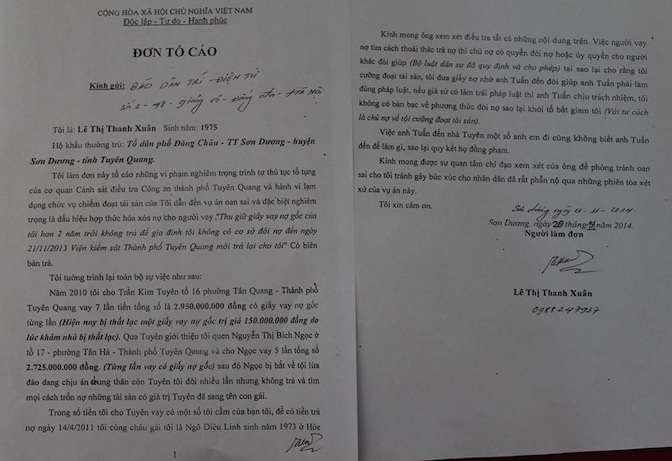 CỘNG HÒA XÃ HỘI CHỦ NGHĨA VIỆT NAM
Độc lập - Tự do - Hạnh phúc
ĐƠN TỐ CÁO
Kính gửi: BÁO DÂN TRÍ - ĐIỆN TỬ
Số 2-48- giảng võ - Đống đa - Hà Nội
Tôi là: Lê Thị Thanh Xuân Sinh năm: 1975
Hộ khẩu thường trú: Tổ dân phố Đăng Châu - TT Sơn Dương - huyện
Sơn Dương - tỉnh Tuyên Quang.
Tôi làm đơn này tố cáo những vi phạm nghiêm trọng trình tự thủ tục tố tụng
của cơ quan Cảnh sát điều tra Công an thành phố Tuyên Quang và hành vi lạm
dụng chức vụ chiếm đoạt tài sản của Tôi dẫn đến vụ án oan sai và đặc biệt nghiêm
trọng là dấu hiệu hợp thức hóa xóa nợ cho người vay "Thu giữ giấy vay nợ gốc của
tôi hơn 2 năm trời không trả để gia đình tôi không có cơ sở đòi nợ đến ngày
21/11/2013 Viện kiểm sát Thành phố Tuyên Quang mới trả lại cho tôi" Có biên
bản trả.
Tôi tường trình lại toàn bộ sự việc như sau:
Năm 2010 tôi cho Trần Kim Tuyên tổ 16 phường Tân Quang - Thành phố
Tuyên Quang vay 7 lần tiền tổng số là 2.950.000.000 đồng có giấy vay nợ gốc
từng lần (Hiện nay bị thất lạc một giấy vay nợ gốc trị giá 150.000.000 đồng do
lúc khám nhà bị thất lạc). Qua Tuyên giới thiệu tôi quen Nguyễn Thị Bích Ngọc ở
tổ 17 - phường Tân Hà - Thành phố Tuyên Quang và cho Ngọc vay 5 lần tổng số
2.725.000.000 đồng. (Từng lần vay có giấy nợ gốc) sau đó Ngọc bị bắt về tội lừa
đảo đang chịu án chung thân còn Tuyên tôi đòi nhiều lần nhưng không trả và tìm
mọi cách trốn nợ những tài sản có giá trị Tuyên đã sang tên con gái.
Trong số tiền tôi cho Tuyên vay có một số tôi cầm của bạn tôi, để có tiền trả
nợ ngày 14/4/2011 tôi cùng cháu gái tôi là Ngô Diệu Linh sinh năm 1973 ở Hòe
1
Kính mong ông xem xét điều tra tất cả những nội dung trên. Việc người vay
nợ tìm cách thoái thác trả nợ thì chủ nợ có quyền đòi nợ hoặc ủy quyền cho người
khác đòi giúp (Bộ luật dân sự đã quy định và cho phép) tại sao lại cho rằng tôi
cưỡng đoạt tài sản, tôi đưa giấy nợ nhờ anh Tuấn đến đòi giúp anh Tuấn phải làm
đúng pháp luật, nếu giả sử có làm trái pháp luật thì anh Tuấn chịu trách nhiệm, tôi
không có bàn bạc về phương thức đòi nợ sao lại khởi tố bắt giam tôi (Với tư cách
là chủ nợ về tội cưỡng đoạt tài sản).
Việc anh Tuấn đến nhà Tuyên một số anh em đi cùng không biết anh Tuấn
đến để làm gì, sao lại quy kết họ đồng phạm.
Kính mong được sự quan tâm chỉ đạo xem xét của ông để phòng tránh oan
sai cho tôi tránh gây bức xúc cho nhân dân đã rất phẫn nộ qua những phiên tòa xét
xử của vụ án này.
Tôi xin cảm ơn.
Sơn Dương, ngày 20 tháng 11 năm 2014.
Người làm đơn
Lê Thị Thanh Xuân